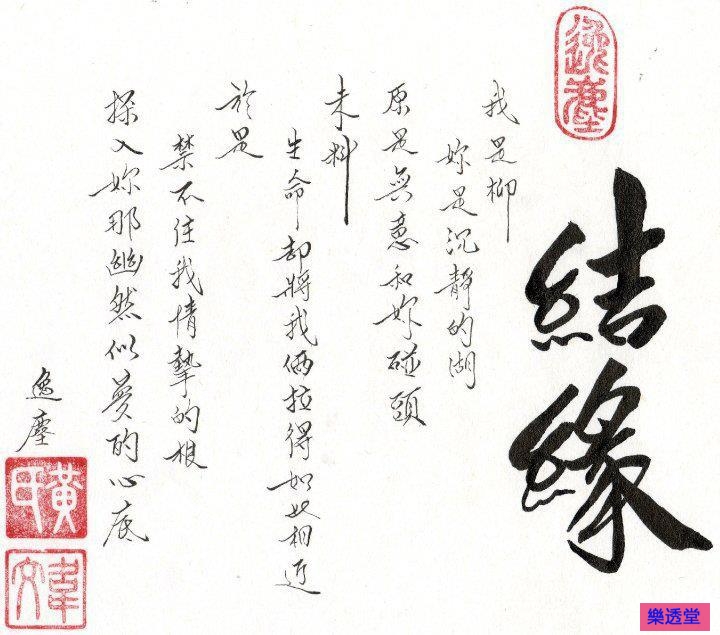 逸塵
結緣
我是柳
妳是沉靜的湖
原是無意和妳碰頭
未料
生命却將我倆拉得如此相近
於是
禁不住我情摯的根
探入妳那幽然似夢的心底
逸塵
黃
文韋
樂透堂